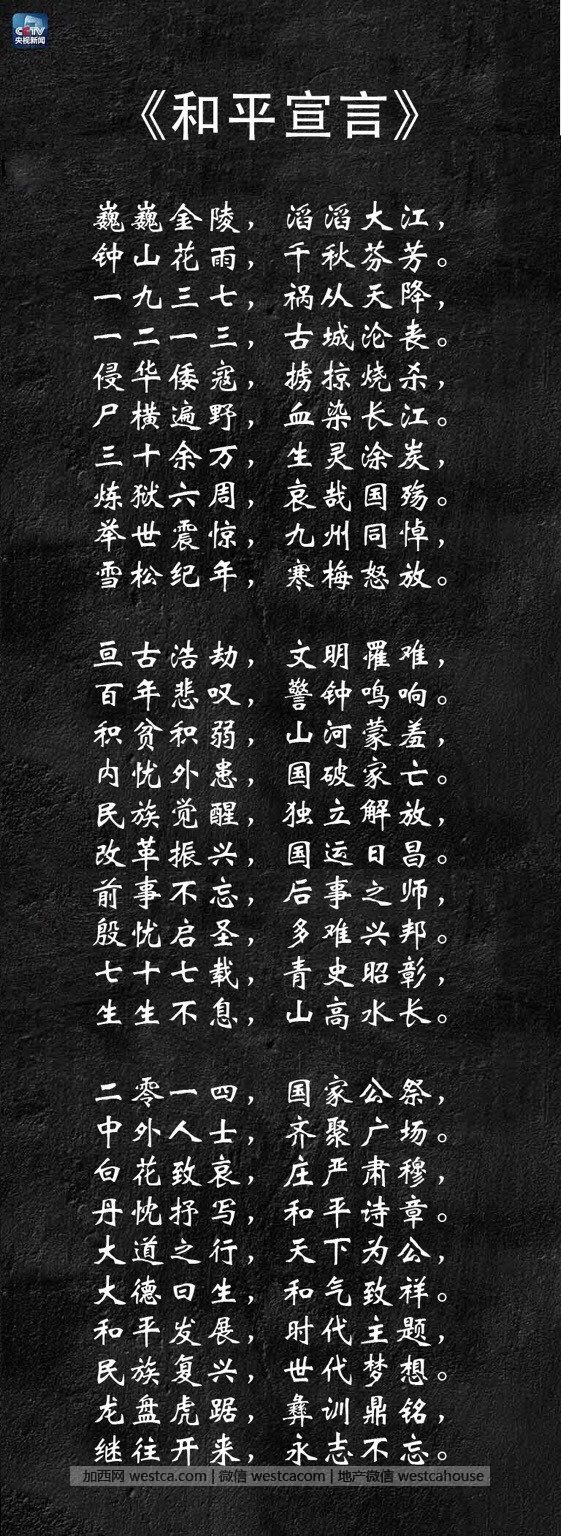 CCTV
央视新闻
《和平宣言》
巍巍金陵，滔滔大江，
钟山花雨，千秋芬芳。
一九三七，祸从天降，
一二一三，古城沦丧。
侵华倭寇，掳掠烧杀，
尸横遍野，血染长江。
三十余万，生灵涂炭，
炼狱六周，哀哉国殇。
举世震惊，九州同悼，
雪松纪年，寒梅怒放。
亘古浩劫，文明罹难，
百年悲叹，警钟鸣响。
积贫积弱，山河蒙羞，
内忧外患，国破家亡。
民族觉醒，独立解放，
改革振兴，国运日昌。
前事不忘，后事之师，
殷忧启圣，多难兴邦。
七十七载，青史昭彰，
生生不息，山高水长。
二零一四，国家公祭，
中外人士，齐聚广场。
白花致哀，庄严肃穆，
丹忱抒写，和平诗章。
大道之行，天下为公，
大德曰生，和气致祥。
和平发展，时代主题，
民族复兴，世代梦想。
龙盘虎踞，彝训鼎铭，
继往开来，永志不忘。
加西网 westca.com | 微信 westcacom | 地产微信 westcahouse